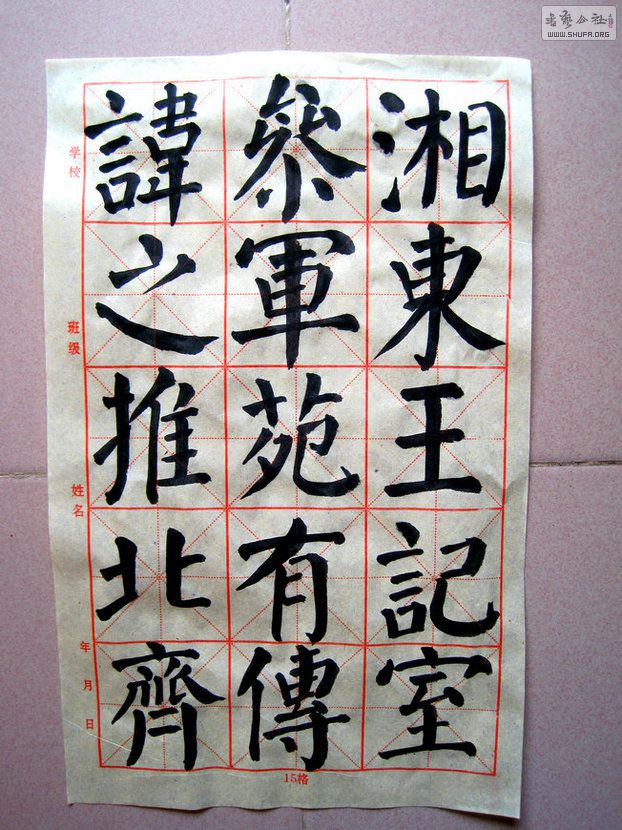 湘東王記室
參軍苑有傳
諱之推北齊
学校
班级
姓名
年月日
15格
书艺公社
WWW.SHUFA.ORG